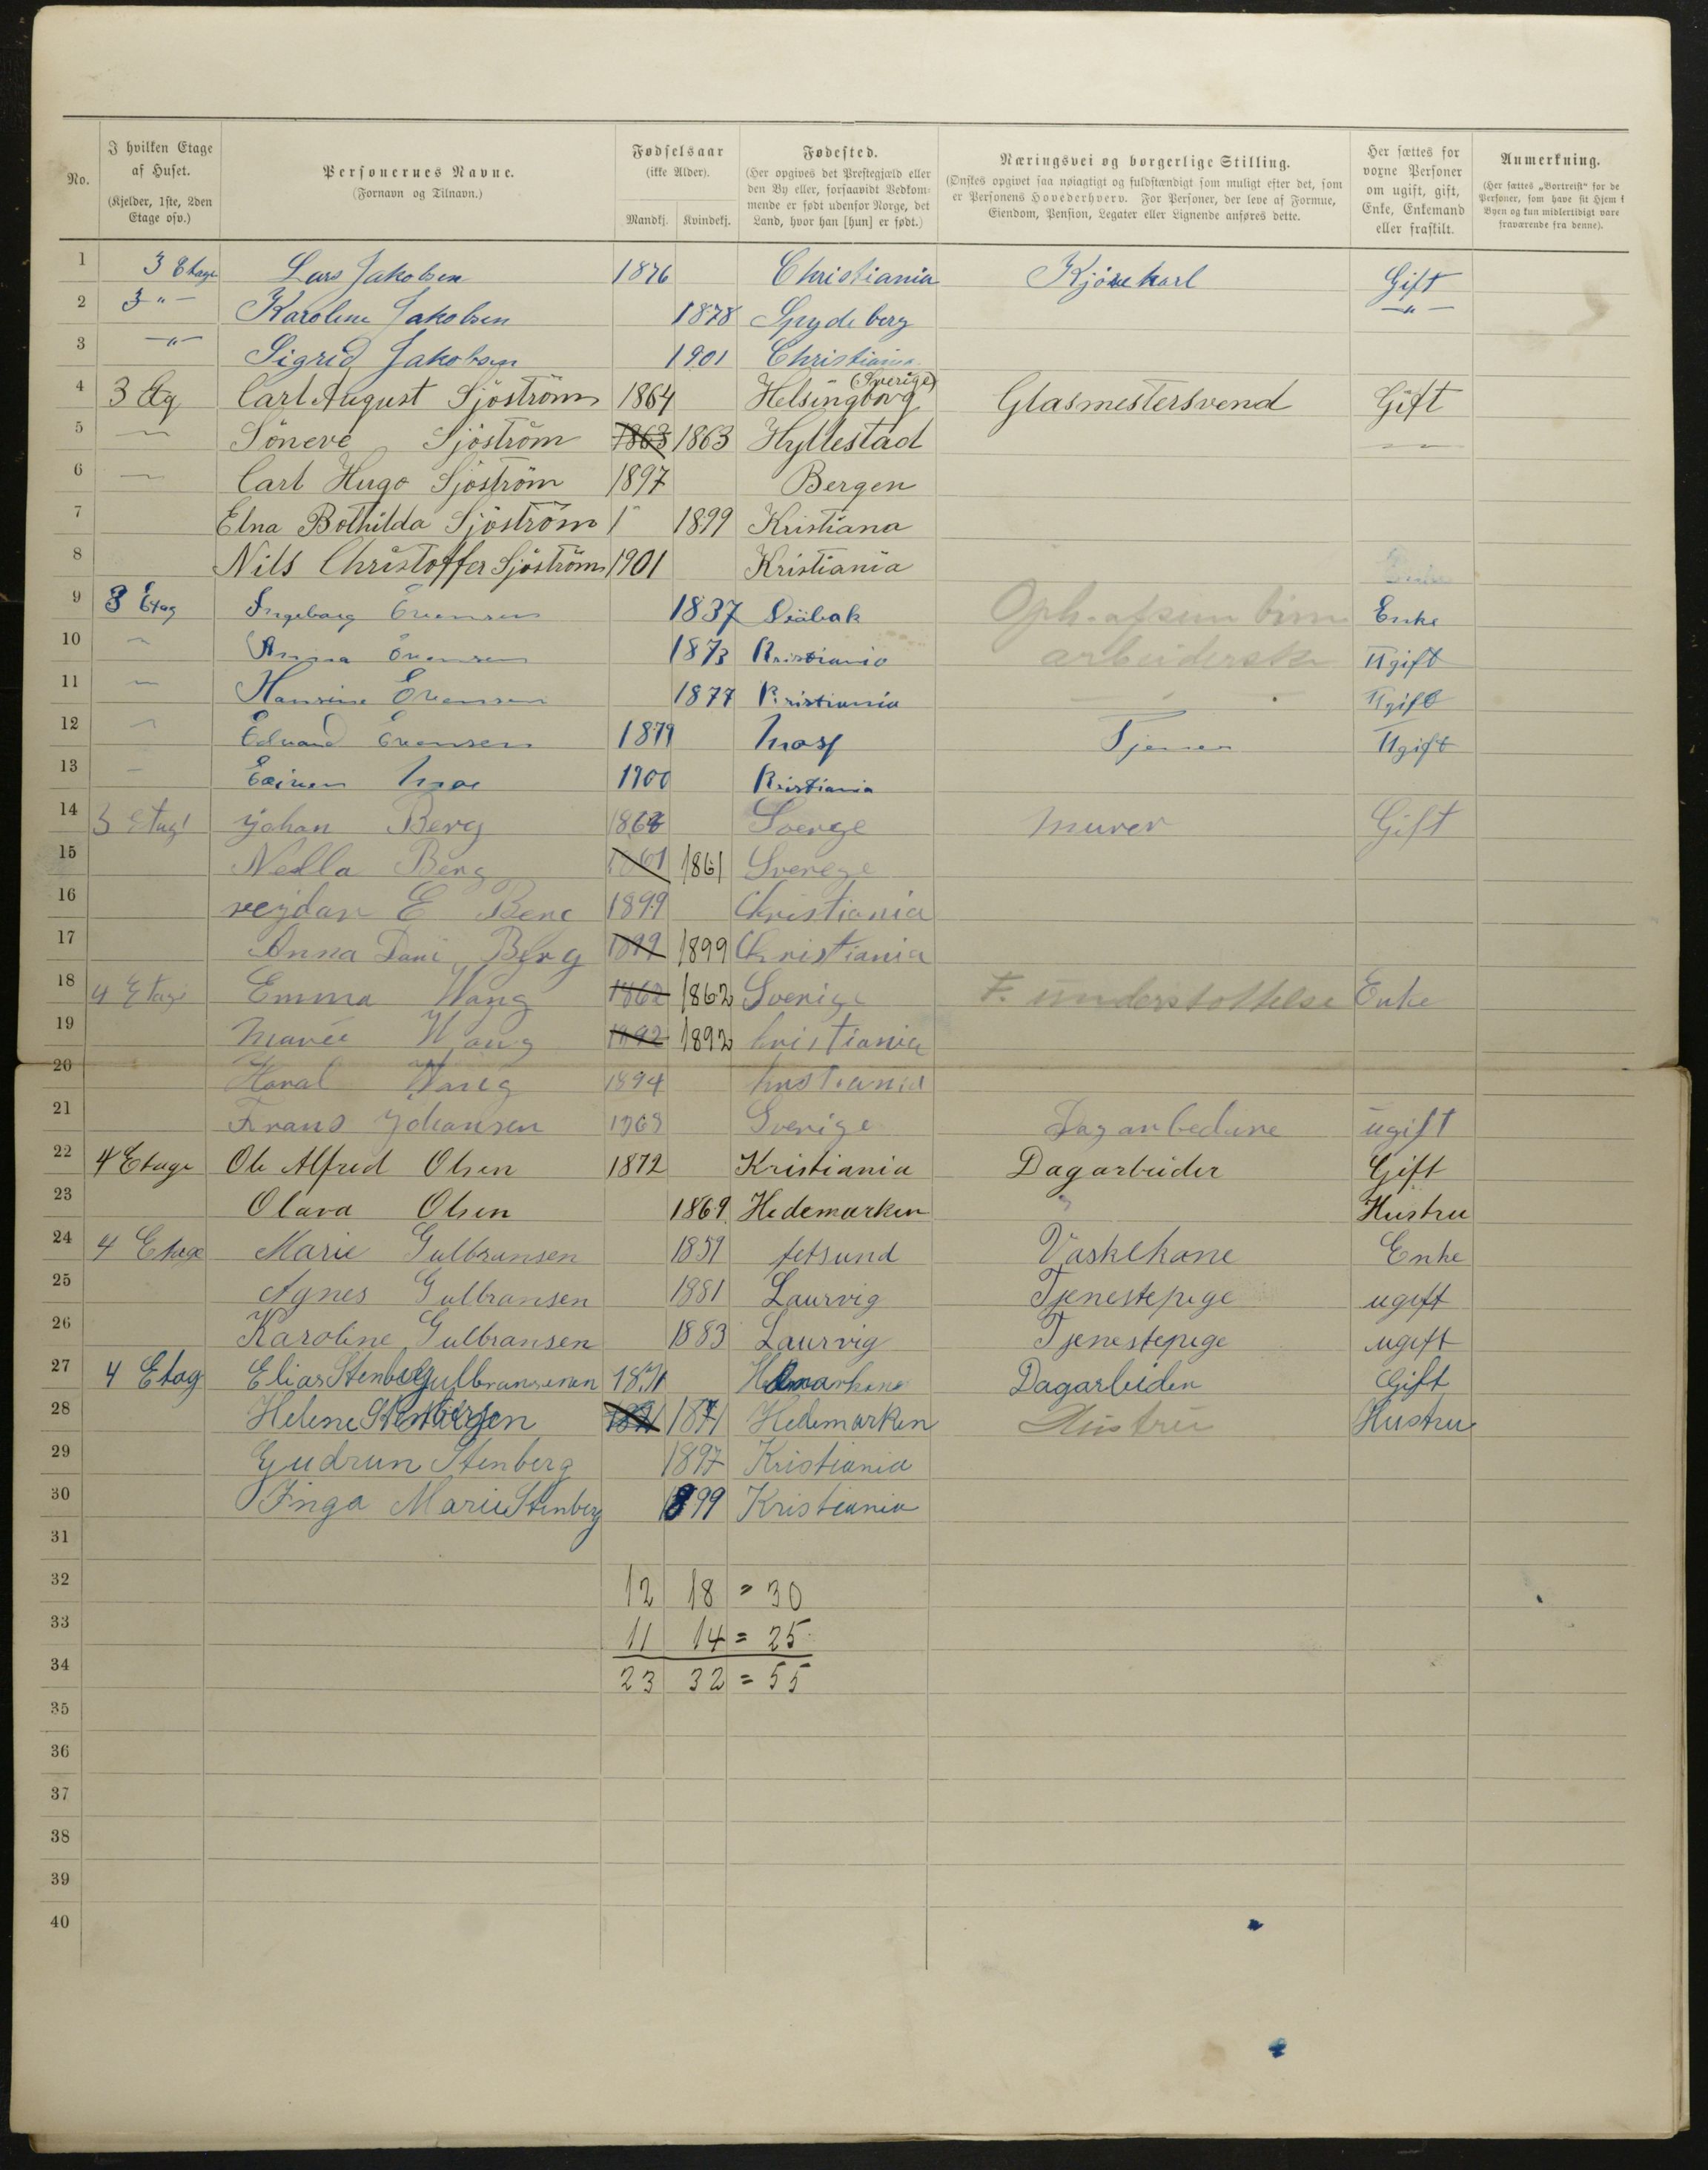 No.
I hvilken Etage af Huset.
(Kjelder, 1ste, 2den Etage osv.)
Personernes Navne.
(Fornavn og Tilnavn.)
Fødselsaar
(ikke Alder).
Mandkj. Kvindekj.
Fødested.
(Her opgives det Prestegjæld eller den By eller, forsaavidt Vedkommende er født udenfor Norge, det Land, hvor han [hun] er født.)
Næringsvei og borgerlige Stilling.
(Ønskes opgivet saa nøiagtigt og fuldstændigt som muligt efter det, som er Personens Hovederhverv. For Personer, der leve af Formue, Eiendom, Pension, Legater eller Lignende anføres dette.
Her sættes for voxne Personer om ugift, gift, Enke, Enkemand eller fraskilt.
Anmerkning.
(Her sættes „Bortreist“ for de Personer, som have sit Hjem i Byen og kun midlertidigt vare fraværende fra denne).
1 3 Etage Lars Jakobsen 1876 Christiania Kjørekarl Gift
2 3 " Karoline Jakobsen 1878 Spydeberg "
3 " Sigrid Jakobsen 1901 Christiania
4 3 Etg Carl August Sjöström 1864 Helsingborg (Sverige) Glasmestersvend Gift
5 — Söneve Sjöström 1863 1863 Hyllestad —
6 — Carl Hugo Sjöström 1897 Bergen
7 Elna Bothilda Sjöström 1 1899 Kristiana
8 Nils Christoffer Sjöström 1901 Kristiania
9 3 Etag Ingeborg Evensen 1837 Enke
10 " Anna Evensen 1873 Kristiania arbeiderske Ugift
11 — Hansine Evensen 1877 Kristiania — Ugift
12 " Edvard Evensen 1879 Moss Tjener Ugift
13 — Moe 1900 Kristiania
14 3 Etage Johan Berg Sverge Murer Gift
15 Nella Berg 1861 1861 Sverege
16 E Berg 1899 Christiania
17 Anna Berg 1899 1899 Christiania
18 4 Etage Emma Wang 1862 1862 Sverige F. understottelse Enke
19 Marie Wang 1892 1892 Kristiania
20 Haral Wang 1894
21 Frans Johansen Sverige ugift
22 4 Etage Ole Alfred Olsen 1872 Kristiania Dagarbeider Gift
23 Olava Olsen 1869 Hedemarken Hustru
24 4 Etage Marie Gulbransen 1859 Fetsund Vaskekone Enke
25 Agnes Gulbransen 1881 Laurvig Tjenestepige ugift
26 Karoline Gulbransen 1883 Laurvig Tjenestepige ugift
27 4 Etag Elias Stenberg 1871 Dagarbeider Gift
28 Helene 1871 1871 Hedemarken Hustru Hustru
29 Gudrun Stenberg 1897 Kristiania
30 Inga Marie Stenberg 1899 Kristiania
31
32 12 18 = 30
33 11 14 = 25
34 23 32 = 55
35
36
37
38
39
40